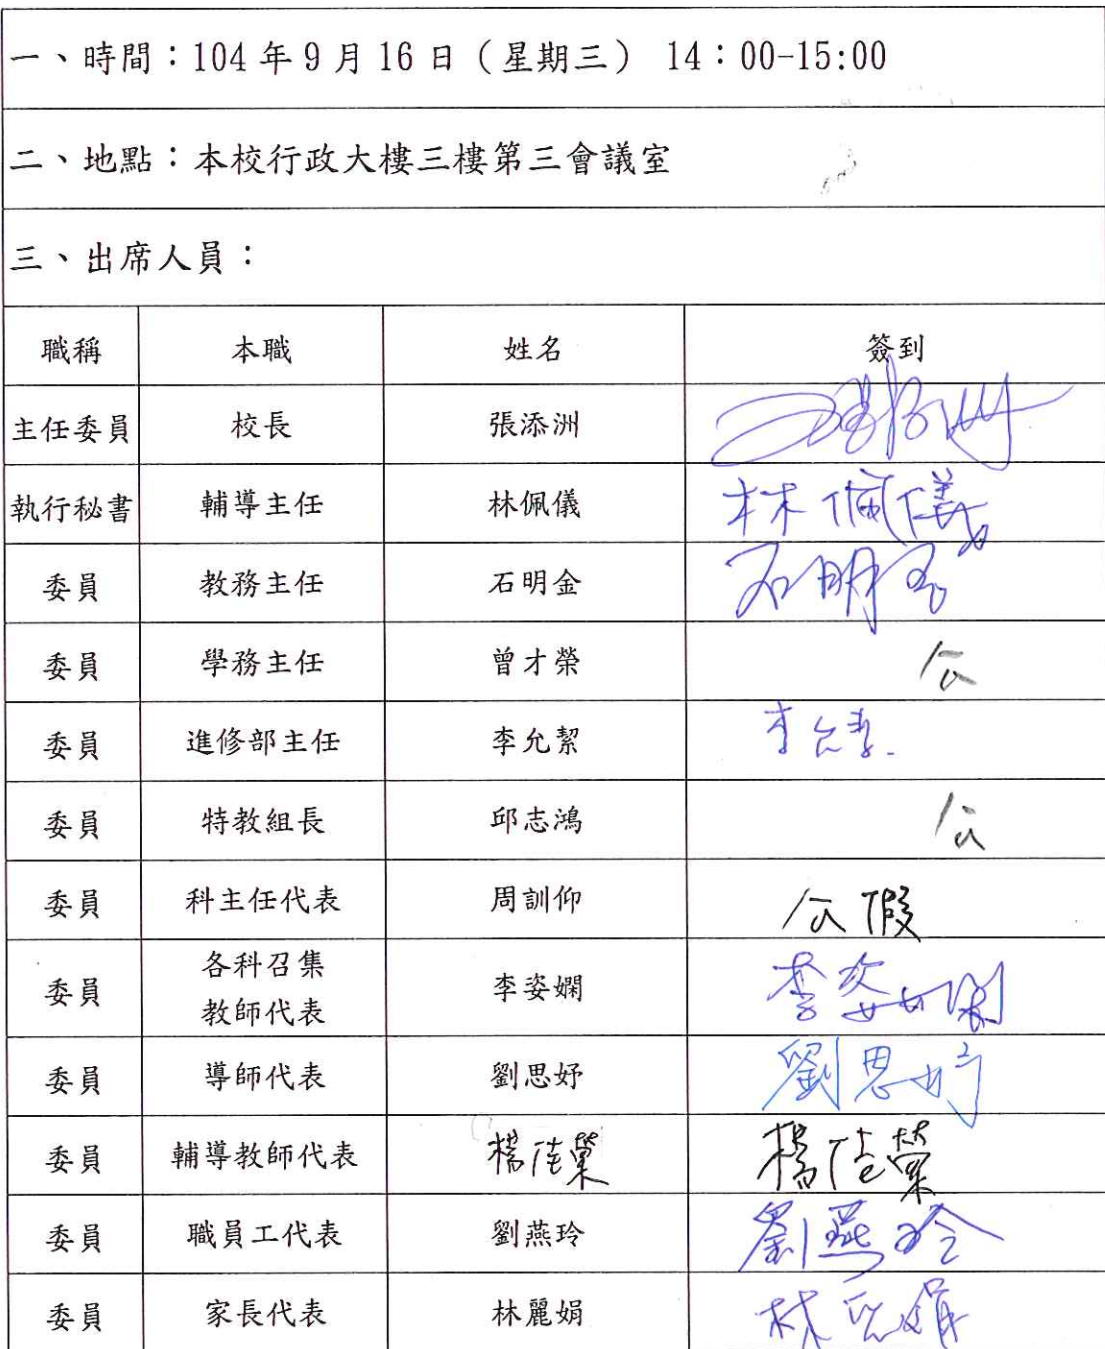 一、時間：104 年 9 月 16 日（星期三） 14：00-15:00
二、地點：本校行政大樓三樓第三會議室
三、出席人員：
職稱 本職 姓名 簽到
主任委員 校長 張添洲 張添洲
執行秘書 輔導主任 林佩儀 林佩儀
委員 教務主任 石明金 石明金
委員 學務主任 曾才榮 公
委員 進修部主任 李允絜 李允絜
委員 特教組長 邱志鴻 公
委員 科主任代表 周訓仰 公假
委員 各科召集 李姿嫻 李姿嫻
教師代表
委員 導師代表 劉思妤 劉思妤
委員 輔導教師代表 楊佳蓉 楊佳蓉
委員 職員工代表 劉燕玲 劉燕玲
委員 家長代表 林麗娟 林麗娟